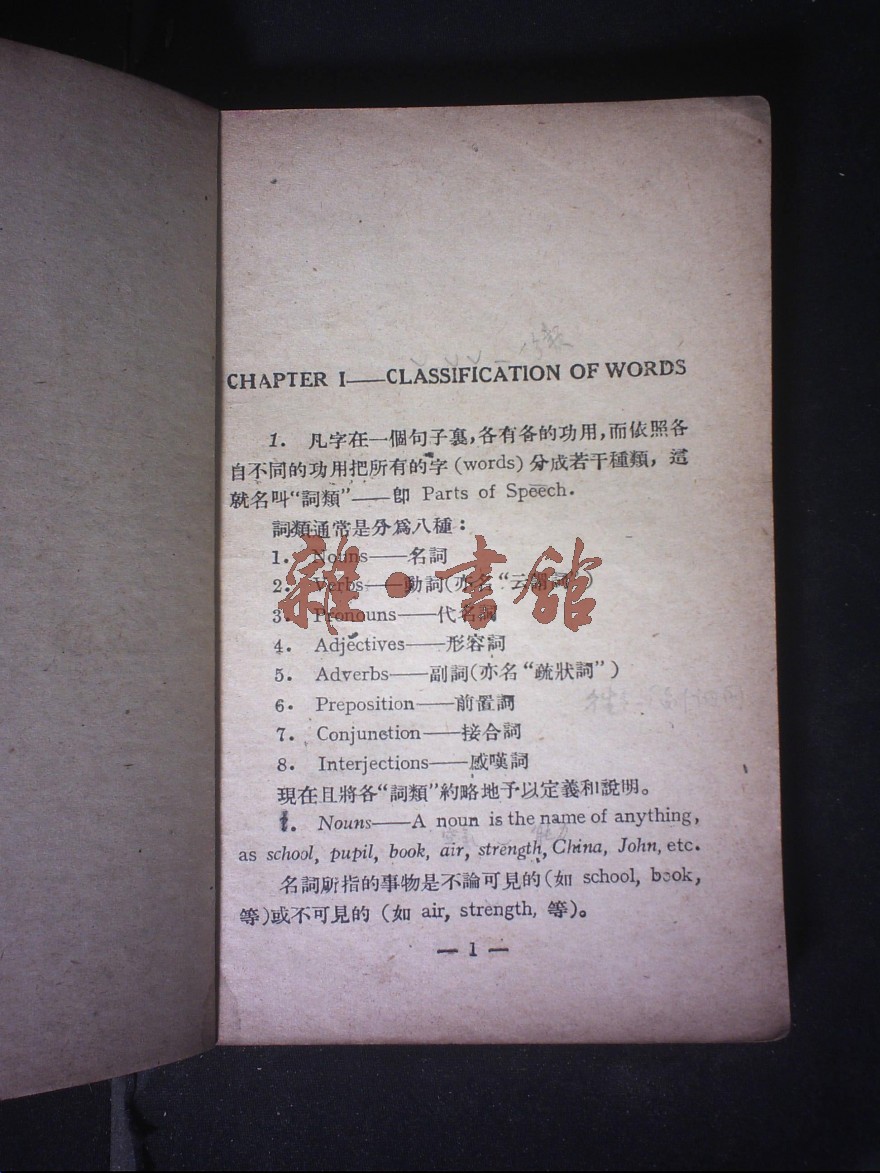 CHAPTER I——CLASSIFICATION OF WORDS
1. 凡字在一個句子裏,各有各的功用,而依照各
自不同的功用把所有的字 (words) 分成若干種類, 這
就名叫“詞類”——卽 Parts of Speech.
詞類通常是分爲八種:
1. Nouns——名詞
2. Verbs——動詞(亦名“云謂詞”)
3. Pronouns——代名詞
4. Adjectives——形容詞
5. Adverbs——副詞(亦名“疏狀詞”)
6. Preposition——前置詞
7. Conjunetion——接合詞
8. Interjections——感嘆詞
現在且將各“詞類”約略地予以定義和說明。
1. Nouns——A noun is the name of anything,
as school, pupil, book, air, strength, China, John, etc.
名詞所指的事物是不論可見的(如 school, book,
等)或不可見的 (如 air, strength, 等)。
— 1 —
雜·書館